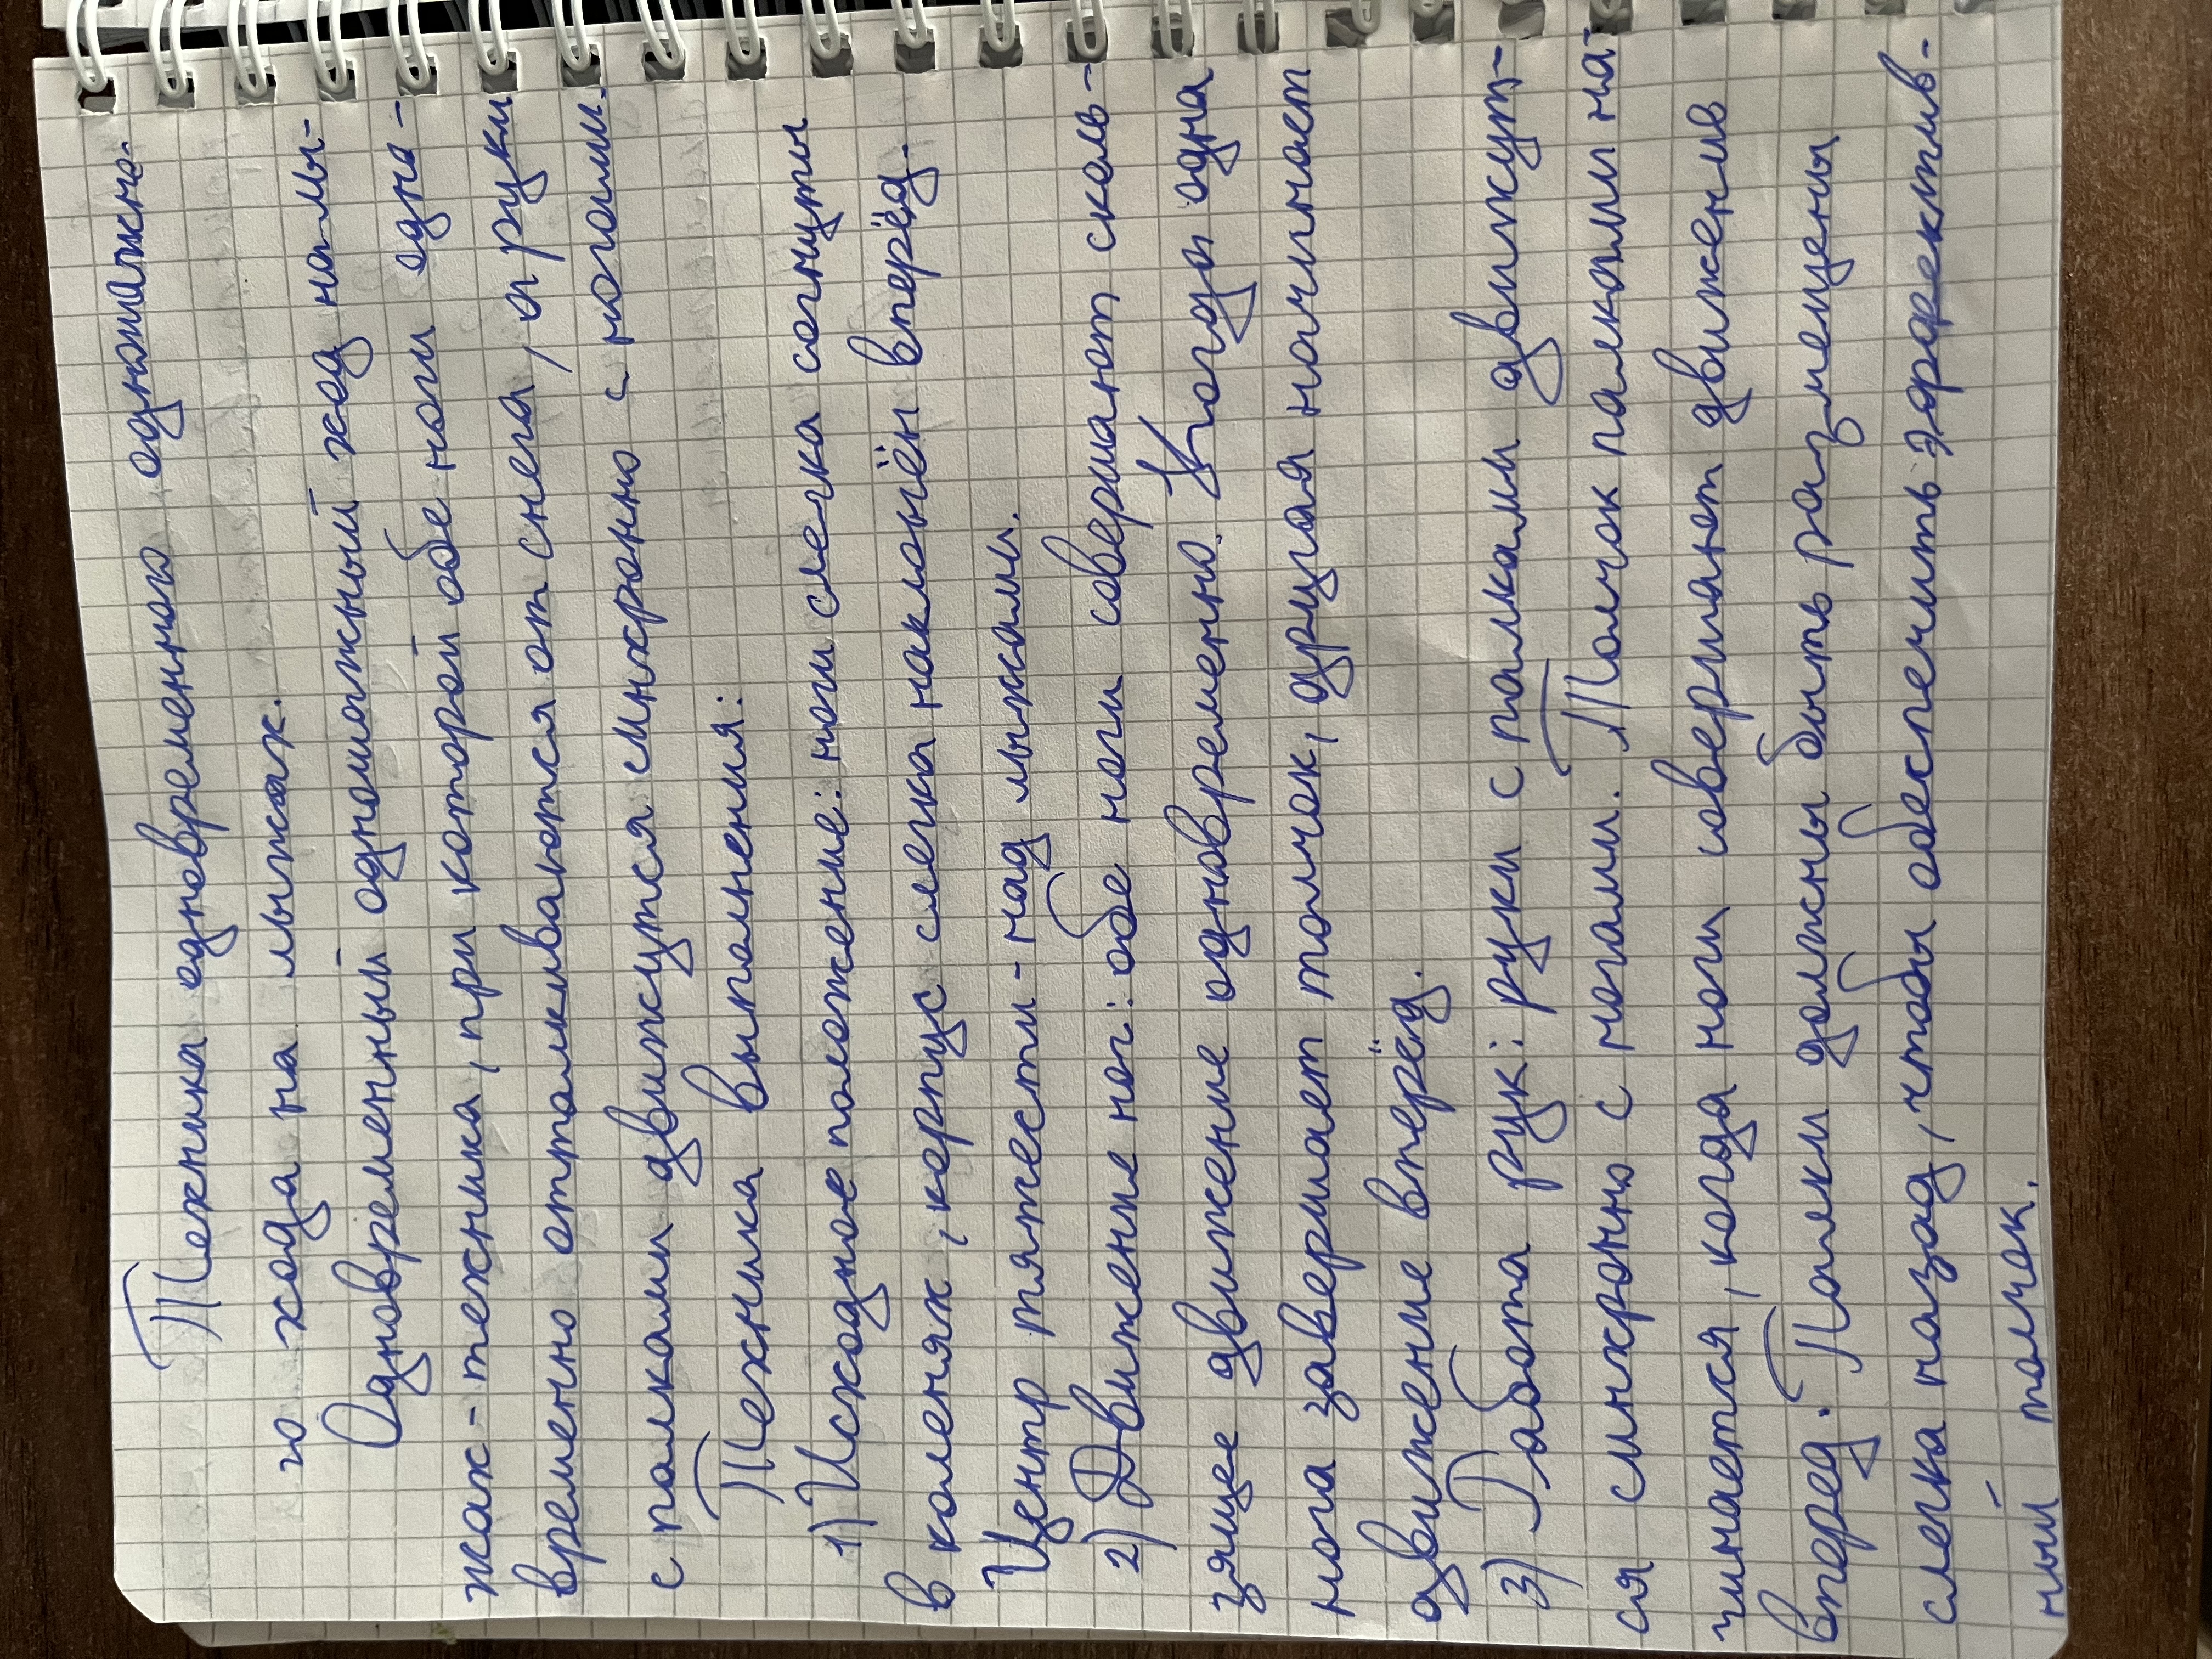 Техника одновременного одношажно-
го хода на лыжах.
Одновременный одношажный ход на лы-
жах - техника, при которой обе ноги одно-
временно отталкиваются от снега, а руки
с палками движутся синхронно с ногами.
Техника выполнения:
1) Исходное положение: ноги слегка согнуты
в коленях, корпус слегка наклонён вперёд.
Центр тяжести - над лыжами.
2) Движение ног: обе ноги совершают сколь-
зящее движение одновременно. Когда одна
нога завершает толчок, другая начинает
движение вперёд.
3) Работа рук: руки с палками движут-
ся синхронно с ногами. Толчок палками на-
чинается, когда ноги совершают движение
вперед. Палки должны быть размещены
слегка назад, чтобы обеспечить эффектив-
ный толчок.